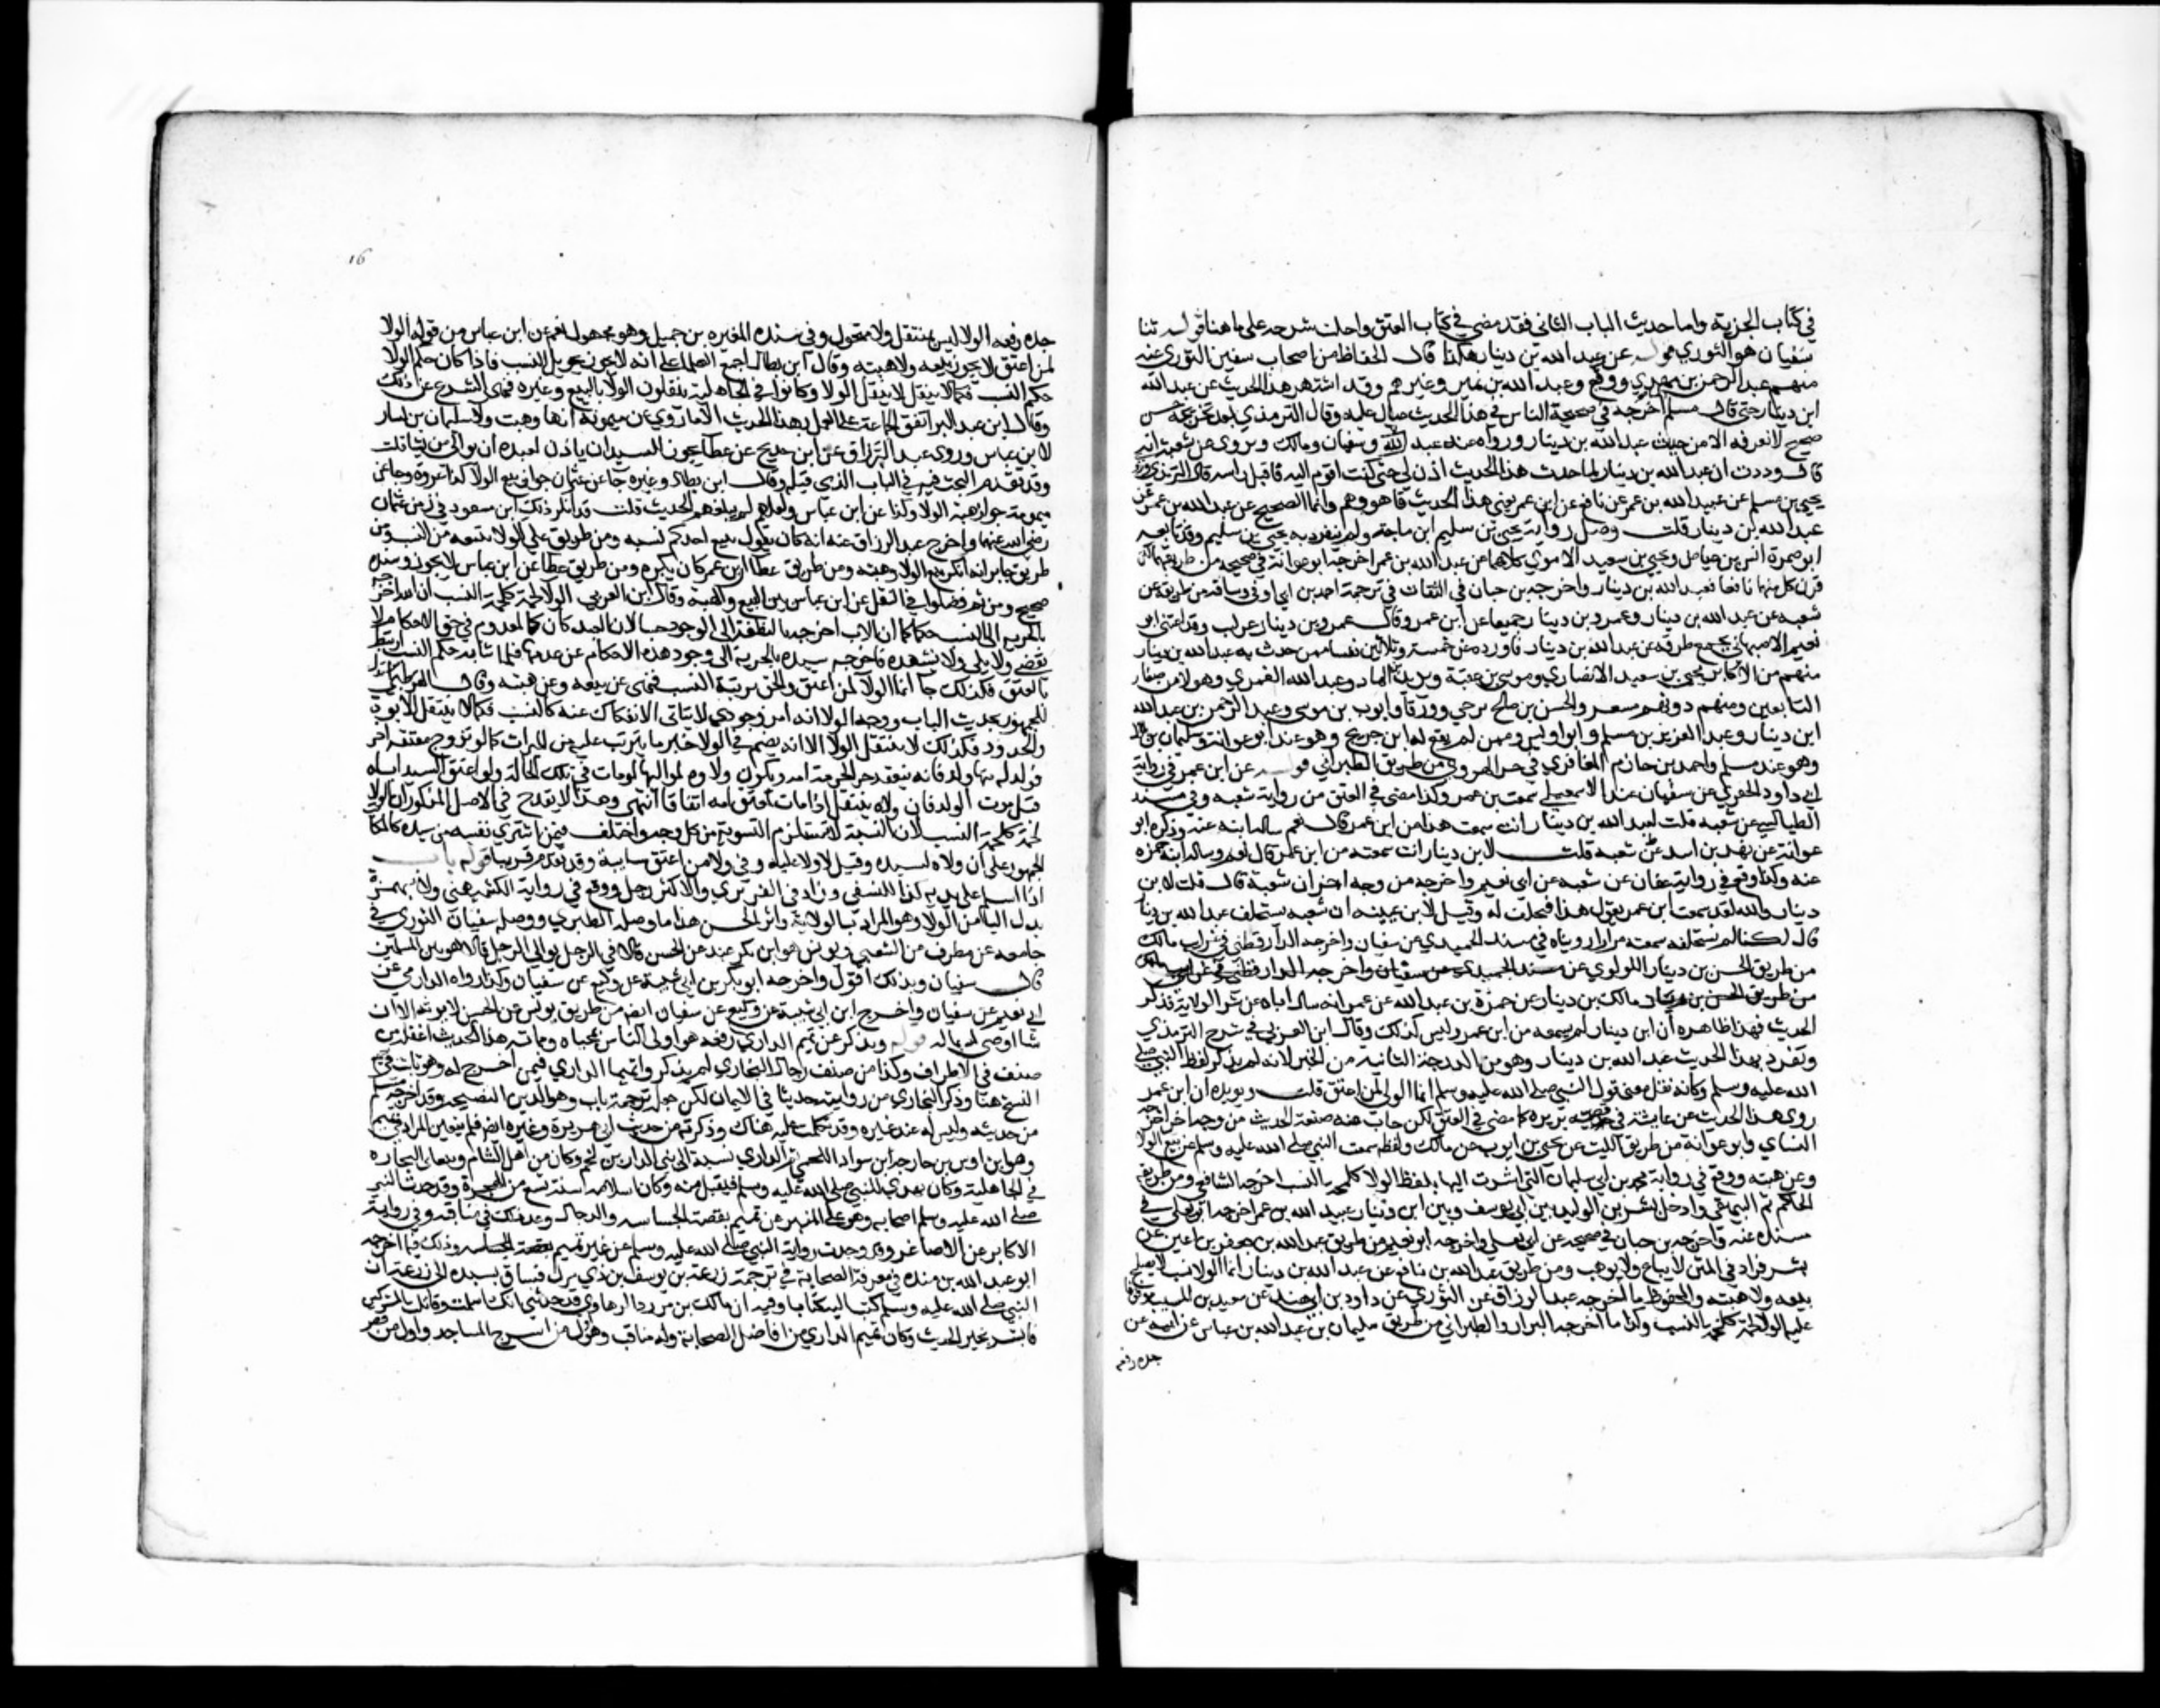 في كتاب الجزية واما حديث الباب الثاني فقد مضى في كتاب العتق واحلت بشرحه على ما هنا قوله ثنا
سفيان هو الثوري قوله عن عبد الله بن دينار هكذا قال الحفاظ من اصحاب سفين الثوري عنه
منهم عبد الرحمن بن مهدي ووكيع وعبد الله بن نمير وغيرهم وقد اشتهر هذا الحديث عن عبد الله
ابن دينار حتى قال مسلم لما اخرجه في صحيحه الناس في هذا الحديث عيال عليه وقال الترمذي بعد تخريجه حسن
صحيح لا نعرفه الا من حديث عبد الله بن دينار ورواه عنه عبيد الله وسفيان ومالك ويروى عن شعبة انه
قال وددت ان عبد الله بن دينار لما حدث هذا الحديث اذن لي حتى كنت اقوم اليه فاقبل راسه قال الترمذي وروى
يحيى بن سليم عن عبيد الله بن عمر عن نافع عن ابن عمر يعني هذا الحديث وهو وهم وانما الصحيح عن عبد الله بن عمر عن
عبد الله بن دينار قلت وصل رواية يحيى بن سليم ابن ماجة ولم ينفرد به يحيى بن سليم وقد تابعه
ابو ضمرة انس بن عياض ويحيى بن سعيد الاموي كلاهما عن عبيد الله بن عمر اخرجه ابو عوانة في صحيحه من طريقهما لكن
قرن كل منهما نافعا بعبد الله بن دينار واخرجه بن حبان في الثقات في ترجمة احمد بن ابي اوفى وساقه من طريقه عن
شعبه عن عبد الله بن دينار وعمرو بن دينار جميعا عن ابن عمر وقال عمرو بن دينار غريب وقد اعتنى ابو
نعيم الاصبهاني بجمع طرقه عن عبد الله بن دينار فاورده عن خمسة وثلاثين نفسا ممن حدث به عبد الله بن دينار
منهم من الاكابر يحيى بن سعيد الانصاري وموسى بن عقبة ويزيد بن الهاد وعبيد الله العمري وهولا من صغار
التابعين وممن دونهم مسعر والحسن بن صالح بن حي وورقا وايوب بن موسى وعبد الرحمن بن عبد الله
ابن دينار وعبد العزيز بن مسلم وابو اويس وممن لم يقع له ابن جريج وهو عند ابو عوانة وسليمان بن بلال
وهو عند مسلم واحمد بن حازم المغافري في جزء الهروي من طريق الطبراني قوله عن ابن عمر في رواية
ابي داود الحفري عن سفيان عند الاسمعيلي سمعت بن عمر وكذا مضى في العتق من رواية شعبه وفي مسند
الطيالسي عن شعبه قلت لعبد الله بن دينار انت سمعت هذا من ابن عمر قال نعم ساله ابنه عنه وذكره ابو
عوانة عن بهز بن اسد عن شعبه قلت لابن دينار انت سمعته من ابن عمر قال نعم وساله ابنه حمزه
عنه وكذا وقع في رواية عفان عن شعبه عن ابي نعيم واخرجه من وجه اخر ان شعبة قال قلت لابن
دينار والله لقد سمعت ابن عمر يقول هذا فيحلف له وقيل لابن عيينه ان شعبه يستحلف عبد الله بن دينار
قال لكنا لم نستحلفه سمعته مرارا رويناه في مسند الحميدي عن سفيان واخرجه الدارقطني في غرائب مالك
من طريق الحسن بن دينار اللولوي عن مسند الحميدي عن سفيان واخرجه الدارقطني في غرائب مالك
من طريق الحسن بن زياد مالك بن دينار عن حمزة بن عبد الله عن عمر انه سال اباه عن شرا الولا فذكر
الحديث فهذا ظاهره ان ابن دينار لم يسمعه من ابن عمر وليس كذلك وقال ابن العربي في شرح الترمذي
وتفرد بهذا الحديث عبد الله بن دينار وهو من الدرجة الثانية من الخبر لانه لم يذكر لفظ النبي صلى
الله عليه وسلم وكانه نقل معنى قول النبي صلى الله عليه وسلم انما الولا لمن اعتق قلت ويويده ان ابن عمر
روى هذا الحديث عن عايشة في قصة بريره كما مضى في العتق لكن جاءت عنه صيغة الحديث من وجه اخر اخرجه
النساي وابو عوانة من طريق الليث عن يحيى بن ايوب عن مالك ولفظه سمعت النبي صلى الله عليه وسلم عن بيع الولا
وعن هبته ووقع في رواية محمد بن ابي سليمان التي اشرت اليها بلفظ الولا لحمة كلحمة النسب اخرجه الشافعي ومن طريقه
الحاكم ثم البيهقي وادخل بشر بن الوليد بين ابي يوسف وبين ابن دينار عبيد الله بن عمر اخرجه ابو يعلى في
مسنده عنه واخرجه بن حبان في صحيحه عن ابي يعلى واخرجه ابو نعيم من طريق عبد الله بن جعفر بن اعين عن
بشر فزاد في المتن لا يباع ولا يوهب ومن طريق عبد الله بن نافع عن عبد الله بن دينار انما الولا نسب لا يصلح
بيعه ولا هبته والمحفوظ ما اخرجه عبد الرزاق عن الثوري عن داود بن ابي هند عن سعيد بن المسيب موقوفا
عليه الولا لحمة كلحمة النسب وكذا ما اخرجه البزار والطبراني من طريق سليمان بن عبد الله بن عباس عن ابيه عن
جده رفعه
16
جده رفعه الولا ليس بمنتقل ولا متحول وفي سنده المغيره بن جميل وهو مجهول نعم عن ابن عباس من قوله الولا
لمن اعتق لا يجوز بيعه ولا هبته وقال ابن بطال اجمع العلماء على انه لا يجوز تحويل النسب فاذا كان حكم الولا
حكم النسب فكما لا ينتقل لا ينتقل الولا وكانوا في الجاهلية ينقلون الولا بالبيع وغيره فنهى الشرع عن ذلك
وقال ابن عبد البر اتفق الجماعة على العمل بهذا الحديث الا ما روي عن ميمونة انها وهبت ولا سليمان بن يسار
لابن عباس وروى عبد الرزاق عن ابن جريج عن عطا يجوز للسيد ان ياذن لعبده ان يوالي من شا قلت
وقد تقدم البحث فيه في الباب الذي قبله وقال ابن بطال وغيره جا عن عثمان جواز بيع الولا وكذا عن عروة وجا عن
ميمونة جواز هبة الولا وكذا عن ابن عباس ولعلهم لم يبلغهم الحديث قلت قد انكر ذلك ابن مسعود في زمن عثمان
رضي الله عنهما واخرج عبد الرزاق عنه انه كان يقول ابيع احدكم نسبه ومن طريق علي الولا شعبه من النسب ومن
طريق جابر انه انكر بيع الولا وهبته ومن طريق عطا ان ابن عمر كان ينكره ومن طريق عطا عن ابن عباس لا يجوز وسنده
صحيح ومن ثم فصلوا في النقل عن ابن عباس بين البيع والهبة وقال ابن العربي الولا لحمة كلحمة النسب ان الله اخرجه
بالحرية الى النسب حكما كما ان الاب اخرجه بالنطفة الى الوجود حسا لان العبد كان كالمعدوم في حق الاحكام لا
يقضي ولا يلي ولا يشهد فاخرجه سيده بالحرية الى وجود هذه الاحكام من عدمها فلما شابه حكم النسب
بالعتق فكذلك جا انما الولا لمن اعتق والحق برتبة النسب فنهى عن بيعه وعن هبته وقال القرطبي استدل
للجمهور بحديث الباب ووجه الولا انه امر وجودي لا يتاتى الانفكاك عنه كالنسب فكما لا ينتقل الابوة
والجدودة فكذلك لا ينتقل الولا الا انه يضم في الولا خبر ما يترتب عليه من الميراث كما لو تزوج معتقه اخر
فولد له منها ولد فانه ينعقد حرا لحرية امه ويكون ولاوه لمواليها لو مات في تلك الحالة ولو اعتق السيد اباه
قبل موت الولد فان ولاه ينتقل اذا مات لمعتق ابيه اتفاقا انتهى وهذا لا يقدح في الاصل المذكور ان الولا
لحمة كلحمة النسب لان التشبيه لا تستلزم التسوية من كل وجه واختلف فيمن اشترى نفسه من سيده كالمكاتب
الجمهور على ان ولاه لسيده وقيل لا ولا عليه وفي ولا من اعتق سايبة وقد تقدم قريبا قوله باب
اذا اسلم على يديه كذا للنسفي وزاد في الفربري والاكثر رجل ووقع في رواية الكشميهني ولاه بهمزة
بدل اليا من الولا وهو المراد بالولاية واثر الحسن هذا ما وصله الطبري ووصله سفيان الثوري في
جامعه عن مطرف عن الشعبي ويونس هو ابن عبيد عن الحسن قالا في الرجل يوالي الرجل قالا هو بين المسلمين
قال سفيان وبذلك اقول واخرجه ابو بكر بن ابي شيبة عن وكيع عن سفيان وكذا رواه الدارمي عن
ابي نعيم عن سفيان واخرج ابن ابي شيبة عن وكيع عن سفيان ايضا من طريق يونس عن الحسن لا يرثه الا ان
شا اوصى له بماله قوله ويذكر عن تميم الداري رفعه هو اولى الناس بمحياه ومماته هذا الحديث اغفله من
صنف في الاطراف وكذا من صنف رجال البخاري لم يذكروا تميما الداري فيمن اخرج له وهو ثابت في جميع
النسخ هنا وذكر البخاري من روايته حديثا في الايمان لكن جعله ترجمة باب وهو الدين النصيحة وقد اخرجه مسلم
من حديثه وليس له عنده غيره وقد تكلمت عليه هناك وذكرته من حديث ابي هريرة وغيره ايضا فلم يتعين المراد في تميم
وهو ابن اوس بن خارجة ابن سواد اللخمي ثم الداري نسبة الى بني الدار بن لخم وكان من اهل الشام ويتعانى التجاره
في الجاهلية وكان يهدي للنبي صلى الله عليه وسلم فيقبل منه وكان اسلامه سنة تسع من الهجرة وقد حدث النبي
صلى الله عليه وسلم اصحابه وهو على المنبر عن تميم بقصة الجساسه والدجال وعد ذلك في مناقبه وفي رواية
الاكابر عن الاصاغر وقد وجدت رواية النبي صلى الله عليه وسلم عن غير تميم بقصة الجساسه وذلك فيما اخرجه
ابو عبد الله بن منده في معرفة الصحابة في ترجمة زرعة بن يوسف بن ذي يزن فساق بسنده الى زرعة ان
النبي صلى الله عليه وسلم كتب اليه كتابا وفيه ان مالك بن مرره الرهاوي قد حدثني انك اسلمت وقاتلت المشركين
فابشر بخير الحديث وكان تميم الداري من افاضل الصحابة وله مناقب وهو اول من اسرج المساجد واول من قص